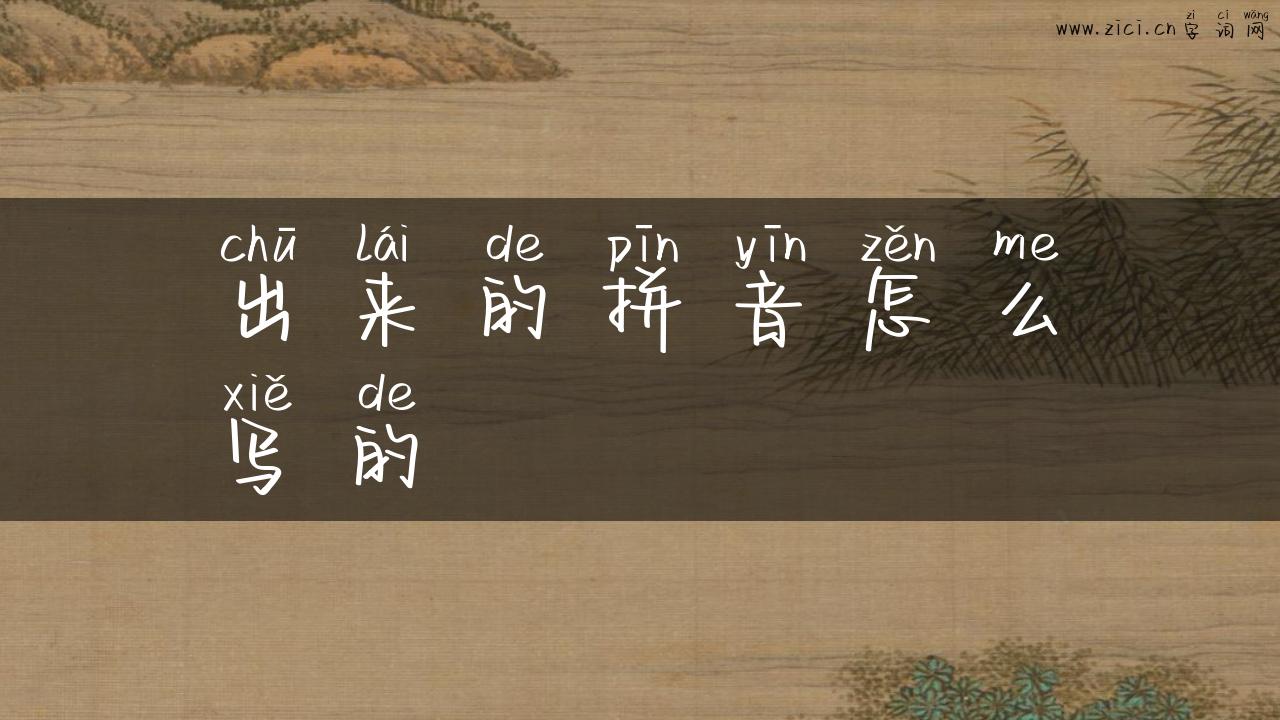 zì cí wǎng
www.zici.cn 字 词 网
chū lái de pīn yīn zěn me
出 来 的 拼 音 怎 么
xiě de
写 的